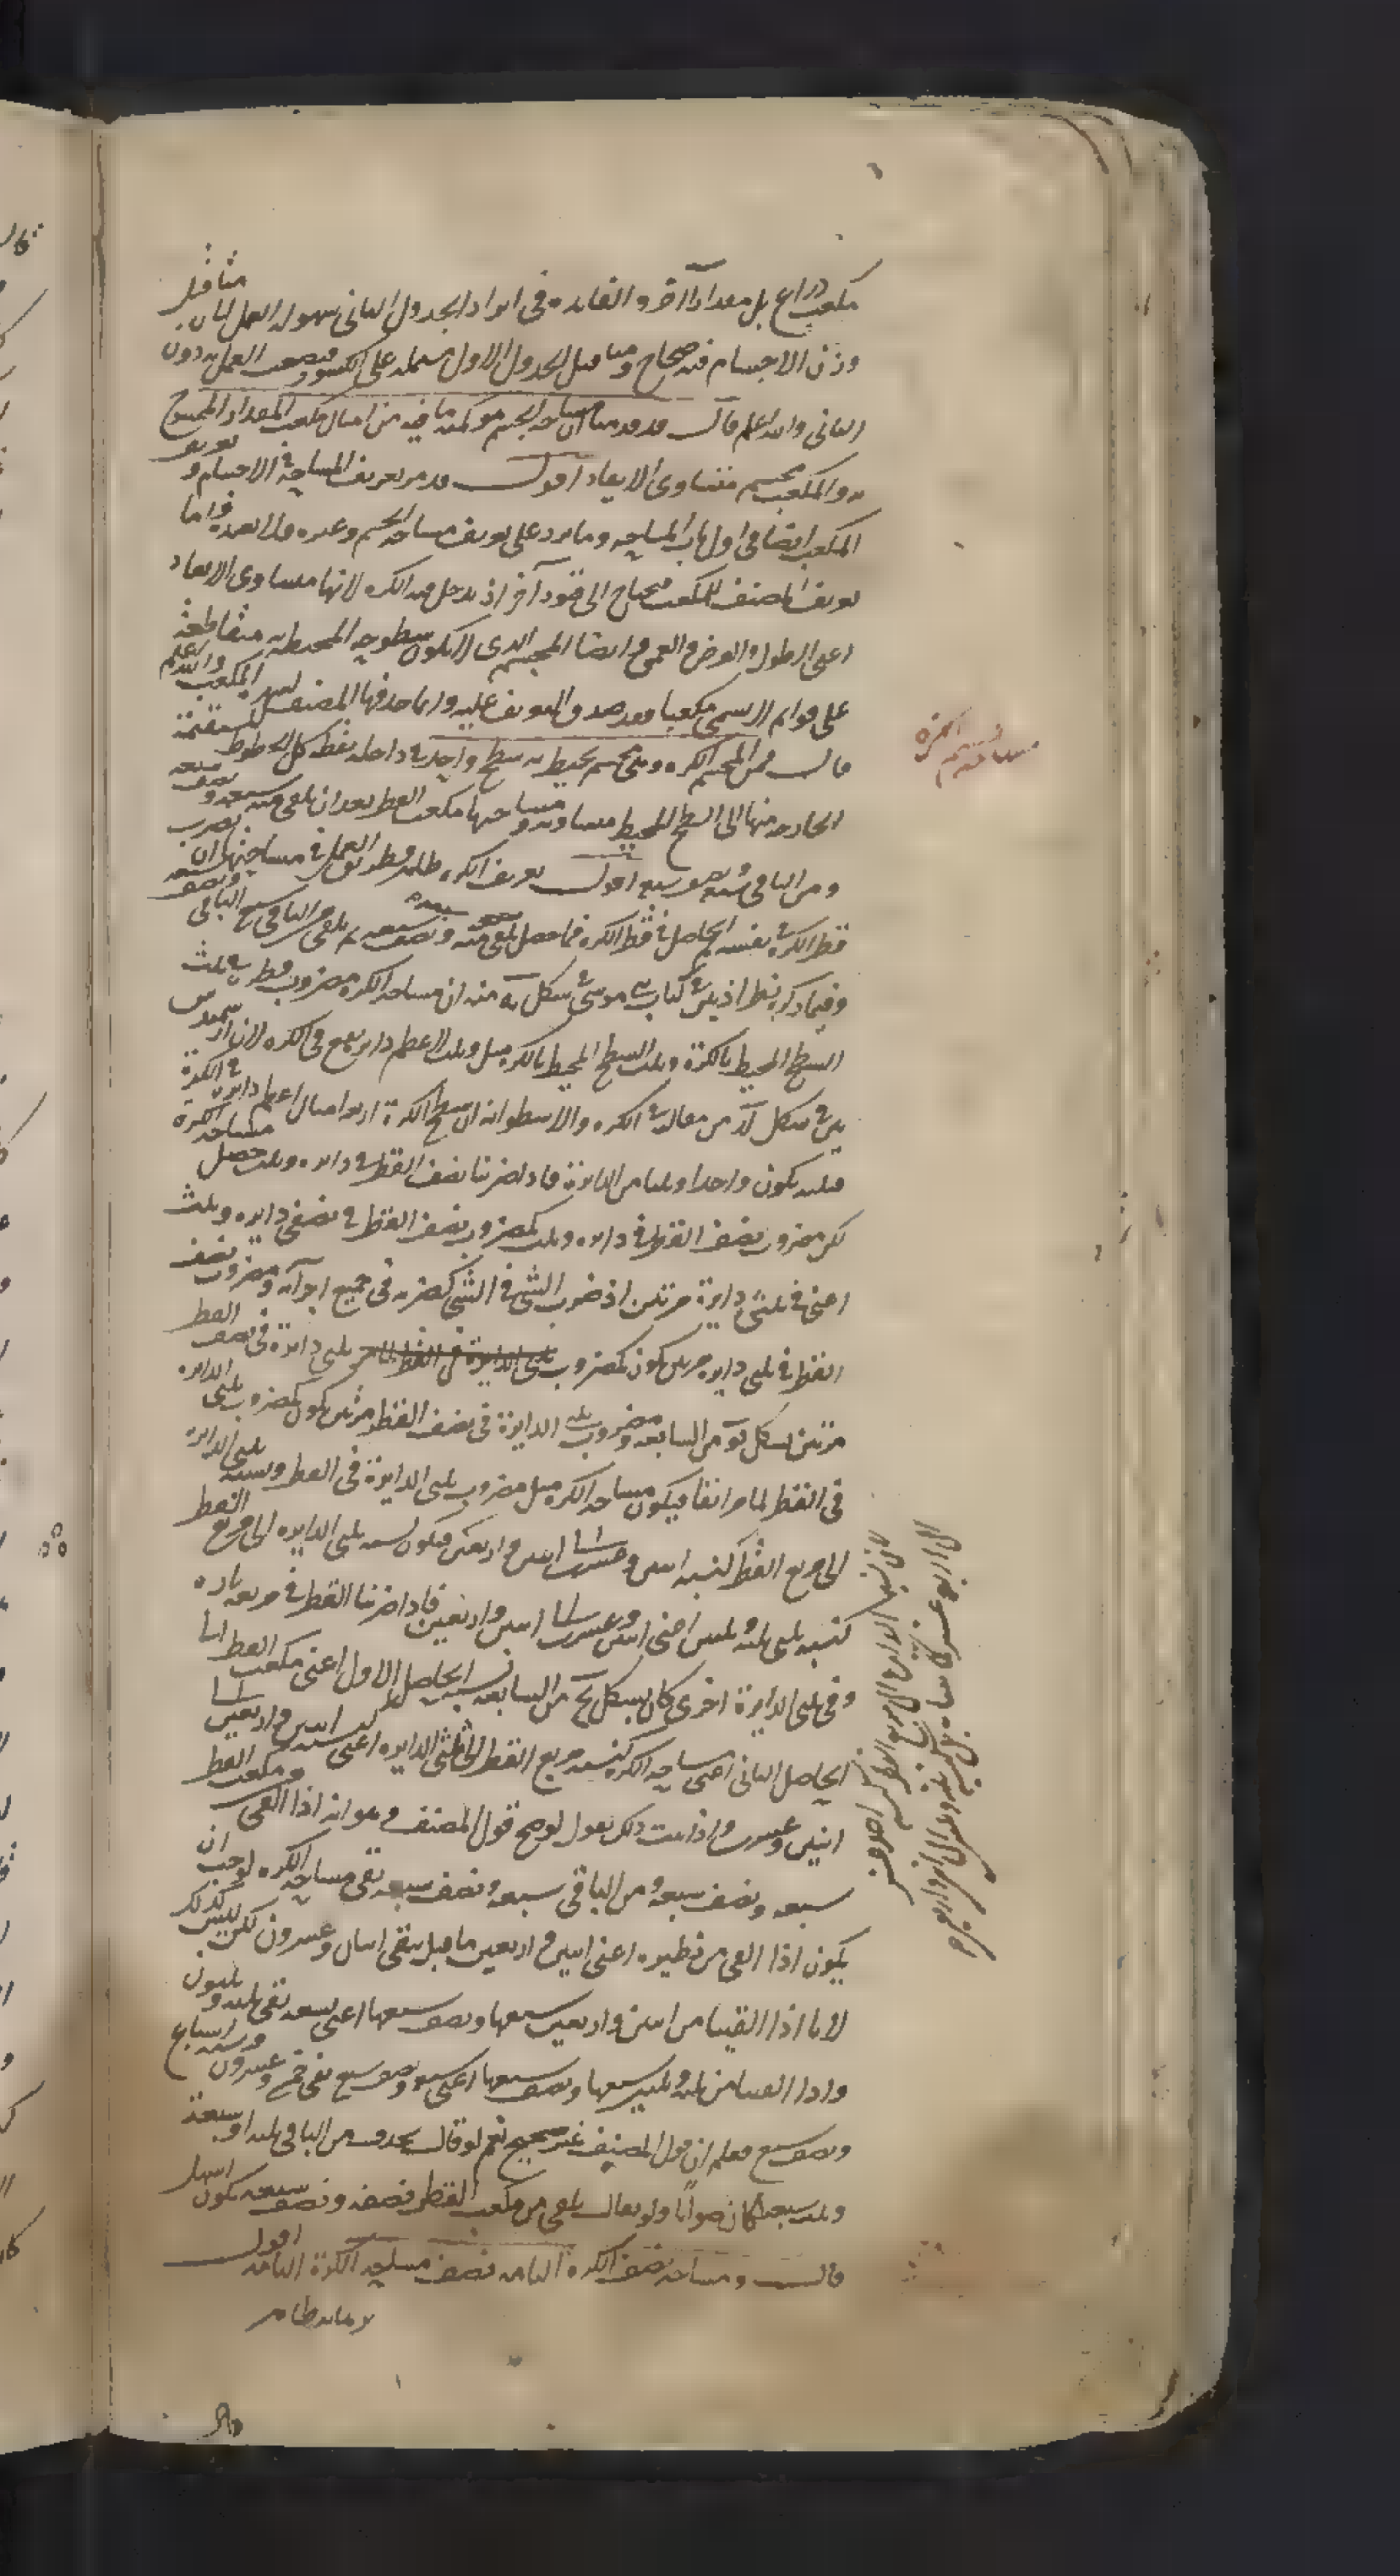 مكعب ذراع بل مقدارا آخر و الفايدة في ايراد الجدول الثاني سهولة العمل لان مثاقيل
وزن الاجسام فيه صحاح و مثاقيل الجدول الاول مشتملة على الكسور فيصعب العمل به دون
الثاني والله اعلم قال قد قدمنا ان مساحة الجسم هو كمية ما فيه من امثال مكعب المقدار الممسوح
به و المكعب مجسم متساوى الابعاد اقول قد مر تعريف المساحة في الاجسام و تعريف
المكعب ايضا في اول باب المساحة وما يرد على تعريف مساحة الجسم وغيره فلا نعيده و اما
تعريف المصنف للمكعب فيحتاج الى قيود آخر اذ يدخل فيه الكرة لانها متساوى الابعاد
اعنى الطول و العرض و العمق و ايضا المجسم الذى لا يكون سطوحه المحيطة به متقاطعة
على قوايم لا يسمى مكعبا مع صدق التعريف عليه و انما حذفها المصنف المكعب والله اعلم
قال فمن المجسم الكرة و هى مجسم يحيط به سطح واحد في داخله نقطة كل الخطوط المستقيمة
الخارجة منها الى السطح المحيط متساوية و مساحتها مكعب القطر بعد ان يلقى منه سبعه و نصف سبعه
و من الباقي سبع و نصف سبع اقول تعريف الكرة ظاهر و طريق العمل في مساحتها ان نضرب
قطر الكرة في نفسه ثم الحاصل في قطر الكرة فما حصل يلقى منه سبعه و نصف سبعه ثم يلقى من الباقي سبع الباقي و نصف سبعه
و فيما ذكره نظر اذ بين في كتاب بنى موسى في شكل يه منه ان مساحة الكرة مضروب قطر في ثلث
السطح المحيط بالكرة و ثلث السطح المحيط بالكرة مثل و ثلث لاعظم دايرة يقع في الكرة لان ارشميدس
بين في شكل لد من مقالة في الكرة و الاسطوانة ان سطح الكرة اربعة امثال اعظم دايرة في الكرة
فثلثه يكون واحدا و ثلثا من الدايرة فاذا ضربنا نصف القطر في دايرة و ثلث حصل مساحة الكرة
لكن مضروب نصف القطر في دايرة و ثلث كمضروب نصف القطر في نصفى دايرة و ثلث
اعنى في ثلثى دايرة مرتين اذ ضرب الشى في الشى كضربه في جميع اجزآئه و مضروب نصف
القطر في ثلثى دايرة مرتين يكون كمضروب ثلثى دايرة في نصف القطر
مرتين بشكل يو من السابعة و مضروب ثلثى الدايرة في نصف القطر مرتين يكون كمضروب ثلثى الدايرة
في القطر لما مر انفا فيكون مساحة الكرة مثل مضروب ثلثى الدايرة في القطر و نسبة ثلثى الدايرة
الى مربع القطر كنسبة اثنين و عشرين الى اثنين و اربعين فيكون نسبة ثلثى الدايرة الى مربع القطر
كنسبة ثلثى ثلثة و ثلثين اعنى اثنين و عشرين الى اثنين و اربعين فاذا ضربنا القطر في مربعه تارة
و في ثلثى الدايرة اخرى كان بشكل يح من السابعة نسبة الحاصل الاول اعنى مكعب القطر الى
الحاصل الثاني اعنى مساحة الكرة كنسبة مربع القطر الى ثلثى الدايرة اعنى كنسبة اثنين و اربعين الى
اثنين و عشرين و اذا ثبت ذلك نقول لو صح قول المصنف و هو انه اذا القى من مكعب القطر
سبعه و نصف سبعه و من الباقي سبعه و نصف سبعه بقى مساحة الكرة لوجب ان
يكون اذا القى من نظيره اعنى اثنين و اربعين ما قيل يبقى اثنان و عشرون لكن ليس كذلك
لانا اذا القينا من اثنين و اربعين سبعها و نصف سبعها اعنى تسعة بقى ثلثة و ثلثون
و اذا القينا من ثلثة و ثلثين سبعها و نصف سبعها اعنى سبعة و نصف سبع بقى خمسة و عشرون و ستة اسباع
و نصف سبع فعلم ان قول المصنف غير صحيح نعم لو قال يحذف من الباقي ثلثه او سبعة
و ثلث سبعه لكان صوابا ولو يقال يلقى من مكعب القطر نصفه و نصف سبعه يكون اسهل
قال و مساحة نصف الكرة التامة نصف مساحة الكرة التامة اقول
برهانه ظاهر
مساحة جسم الكرة